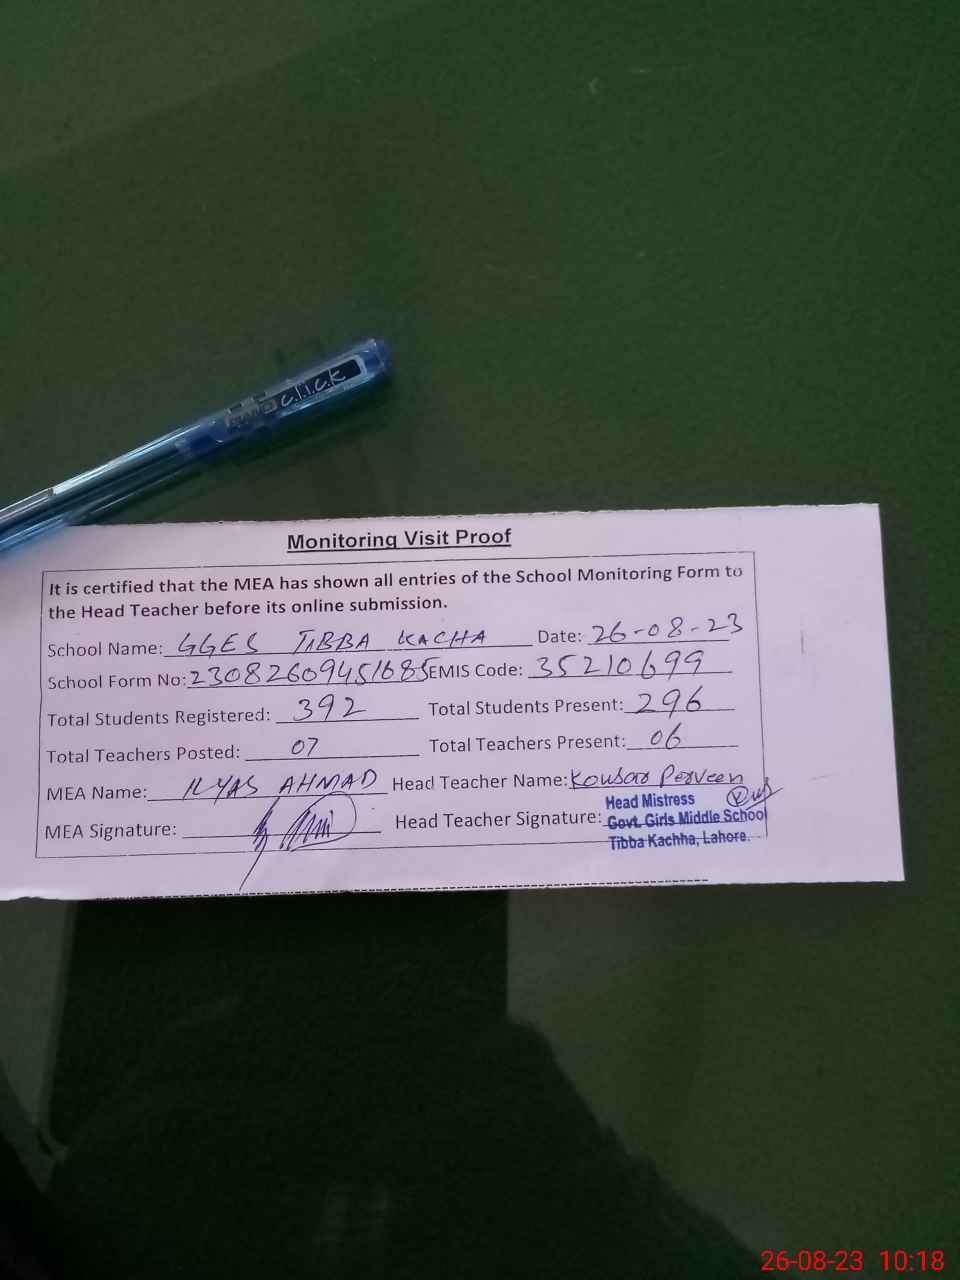 click
Monitoring Visit Proof
It is certified that the MEA has shown all entries of the School Monitoring Form to
the Head Teacher before its online submission.
School Name: GGES TIBBA KACHA Date: 26-08-23
School Form No: 23082609451685 EMIS Code: 35210699
Total Students Registered: 392 Total Students Present: 296
Total Teachers Posted: 07 Total Teachers Present: 06
MEA Name: ILYAS AHMAD Head Teacher Name: Kousar Perveen
MEA Signature: Head Teacher Signature:
Head Mistress
Govt. Girls Middle School
Tibba Kachha, Lahore.
26-08-23 10:18